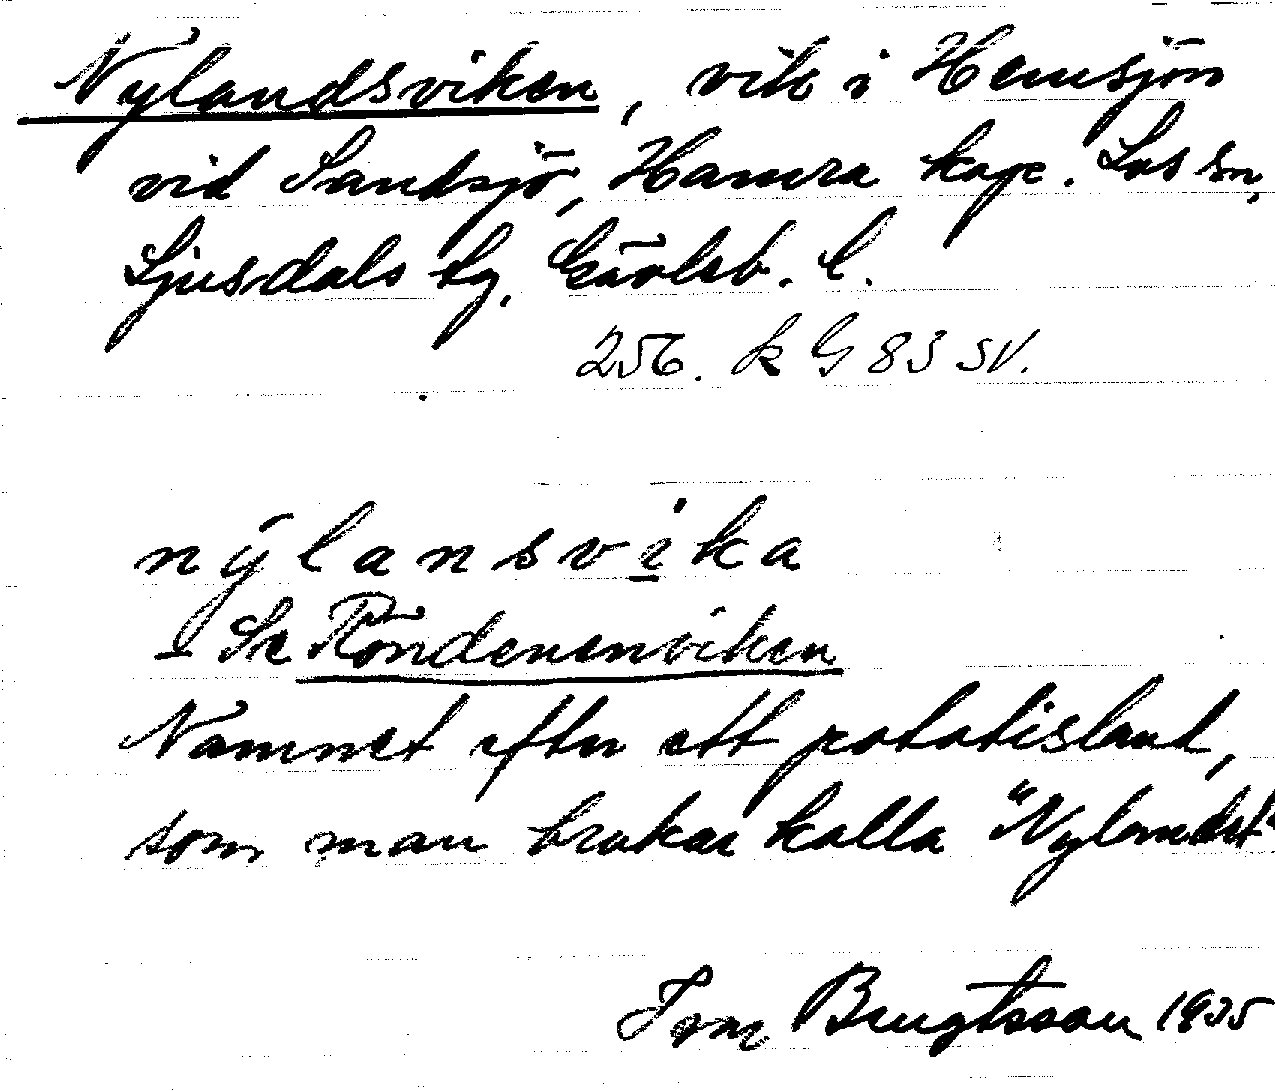 Nylandsviken, vik i Hemsjön
vid Sandsjö, Hamra kap. Los sn,
Ljusdals tg, Gävleb. l.
256. k G 83 SV.
nýlansvika
Se Röndenenviken
Namnet efter ett potatisland,
som man brukar kalla "Nylandet"
Tom Bengtsson 1935